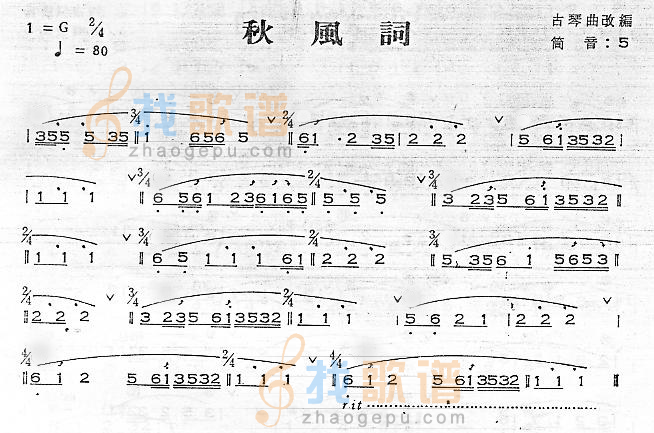 1 = G 2/4
♩ = 80
秋 風 詞
古琴曲改編
筒 音 : 5
找歌谱
zhaogepu.com
3/4 2/4
| 355 5 35 ‖ 1 656 5 ‖ 61 · 2 35 | 2 2 2 | 5 613532 |
3/4 2/4 3/4
| 1 1 1 ‖ 6 561 236165 ‖ 5 5 5 ‖ 3 235 613532 ‖
2/4 3/4 2/4 3/4
‖ 1 1 1 ‖ 6 5 1 1 6 1 ‖ 2 2 2 ‖ 5. 356 1 5653 ‖
2/4 3/4 2/4
‖ 2 2 2 ‖ 3 235 613532 ‖ 1 1 1 | 5 6 2 1 | 2 2 2 |
4/4 2/4 4/4
‖ 6 1 2 5 613532 ‖ 1 1 1 ‖ 6 1 2 5 613532 | 1 1 1 ‖
rit
找歌谱
zhaogepu.com